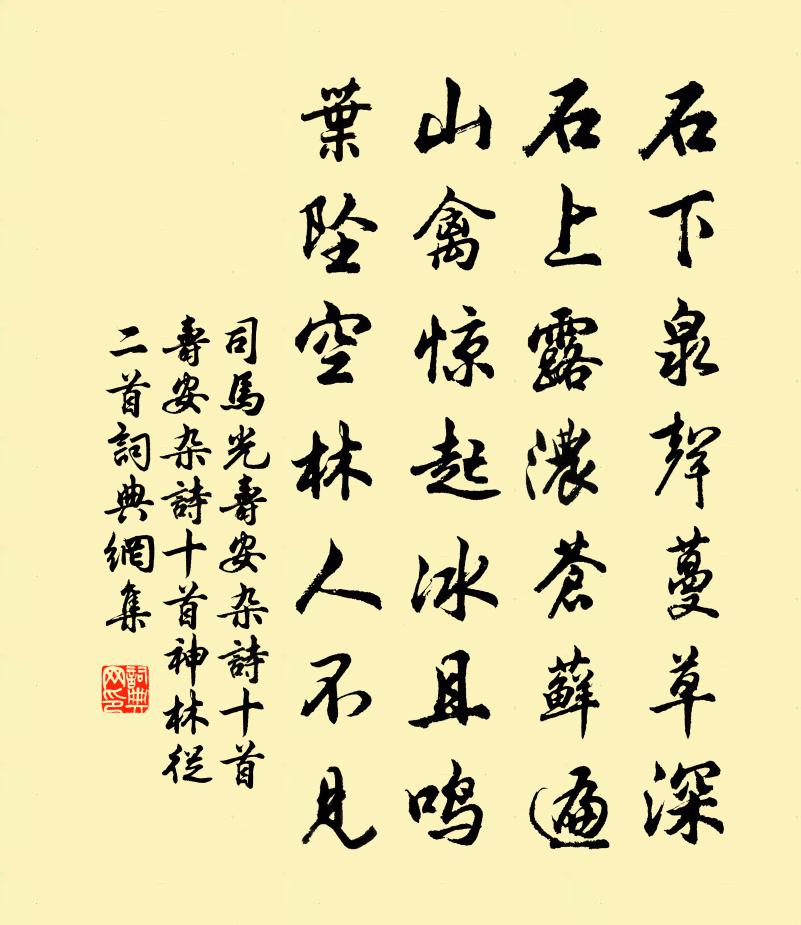 石下泉聲蔓草深
石上露濃蒼蘚遍
山禽惊起冰且鸣
葉坠空林人不見
司馬光壽安杂詩十首
壽安杂詩十首神林從
二首詞典網集
詞典网印